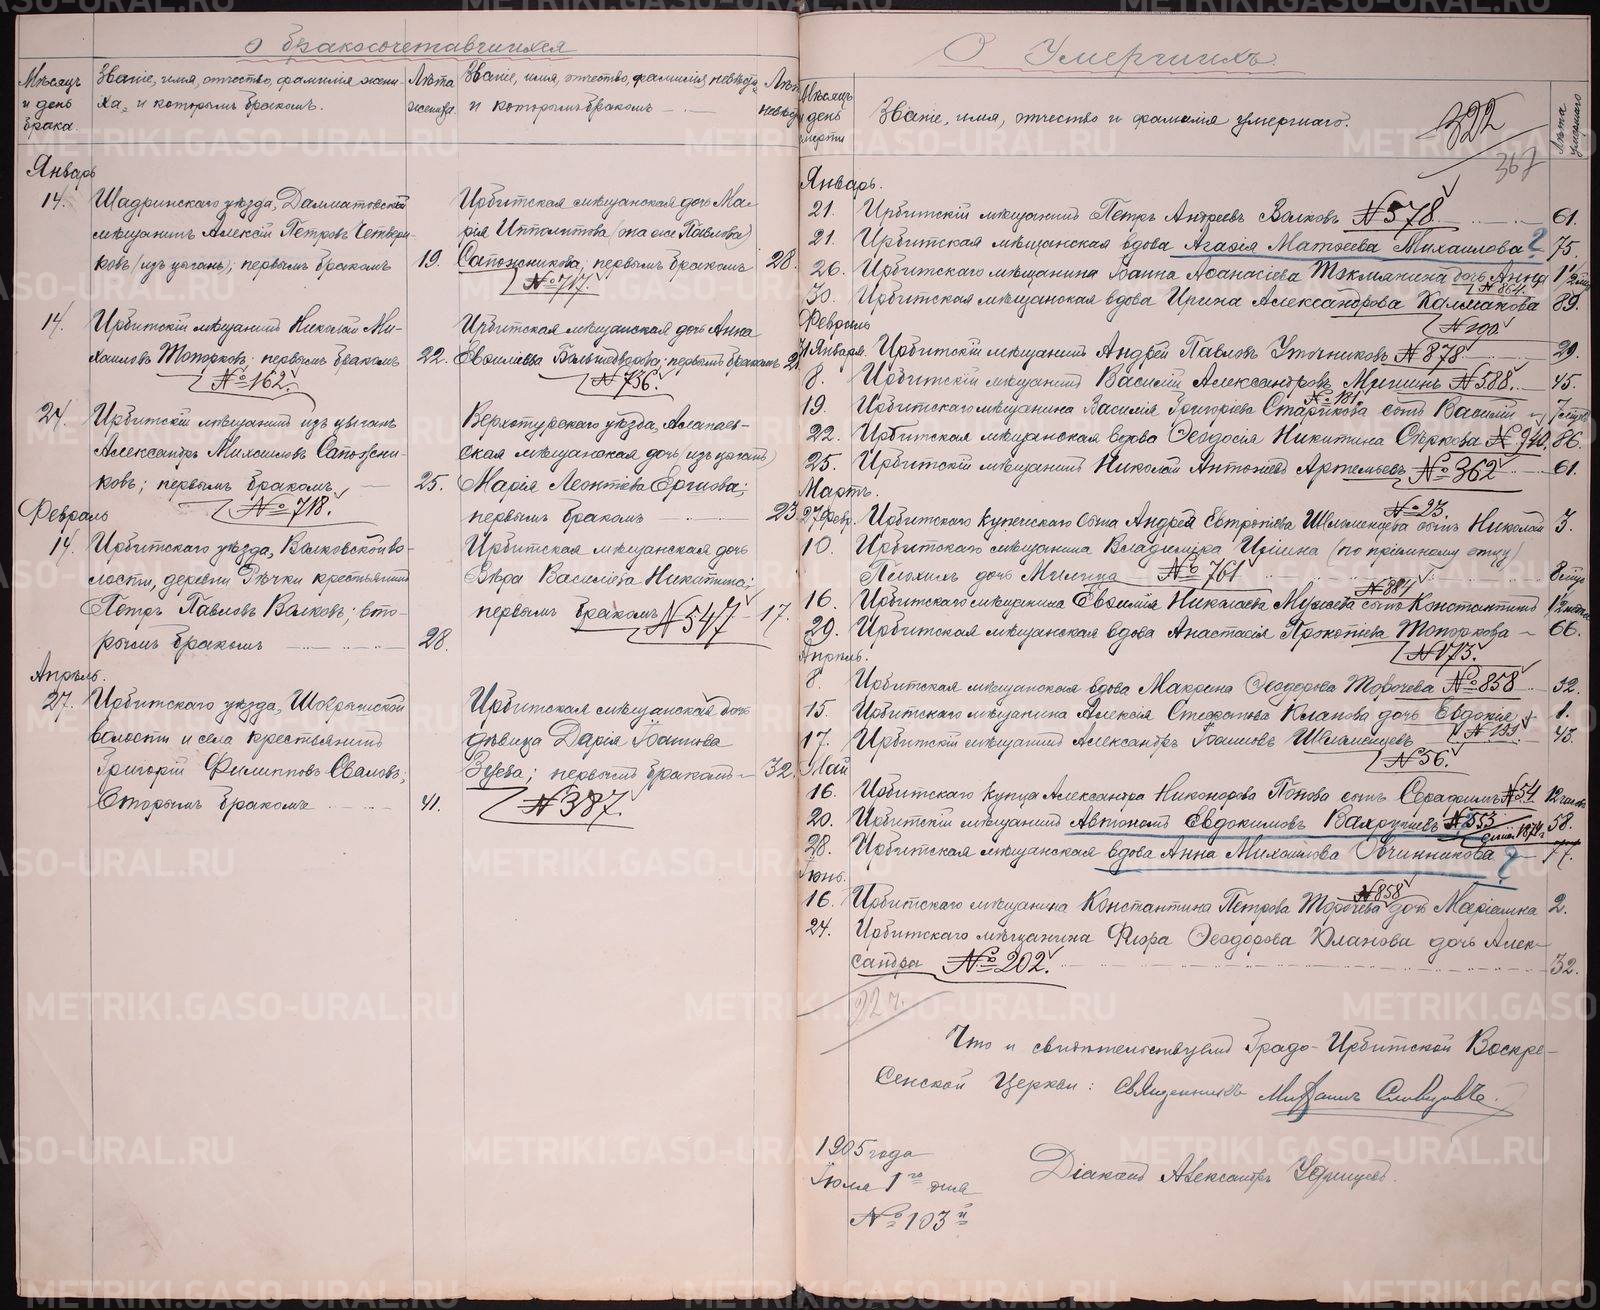 О бракосочетавшихся
Мѣсяцъ и день брака.
Званіе, имя, отчество, фамилія жени-
ха, и которымъ бракомъ.
Лѣта жениха.
Званіе, имя, отчество, фамилія невѣсты
и которымъ бракомъ
Лѣт невѣс
Январь
14. Шадринскаго уѣзда, Далматовскій
мѣщанинъ Алексѣй Петровъ Четвери-
ковъ (изъ цыганъ); первымъ бракомъ 19.
Ирбитская мѣщанская дочь Ма-
рія Ипполитова (она же Павлова)
Сапожникова, первымъ бракомъ 28.
№717.
14. Ирбитскій мѣщанинъ Николай Ми-
хаиловъ Топорковъ; первымъ бракомъ 22.
№162.
Ирбитская мѣщанская дочь Анна
Евфиміева Большедворова; первымъ бракомъ 2
№736.
24. Ирбитскій мѣщанинъ изъ цыганъ
Александръ Михаиловъ Сапожни-
ковъ; первымъ бракомъ 25.
№718.
Верхотурскаго уѣзда, Алапаев-
ская мѣщанская дочь (изъ цыганъ)
Марія Леонтіева
первымъ бракомъ 23
Февраль
14. Ирбитскаго уѣзда, Волковской во-
лости, деревни Рѣчки крестьянинъ
Петръ Павловъ Волковъ; вто-
рымъ бракомъ 28.
Ирбитская мѣщанская дочь
Вѣра Василіева Никитина;
первымъ бракомъ №547 17.
Апрѣль.
27. Ирбитскаго уѣзда, Шогрышской
волости и села крестьянинъ
Григорій Филипповъ Сваловъ;
вторымъ бракомъ 41.
Ирбитская мѣщанская дочь
дѣвица Дарія Іоаннова
Зуева; первымъ бракомъ 32.
№387.
О Умершихъ
Мѣсяцъ и день смерти
Званіе, имя, отчество и фамилія умершаго.
322
367
Лѣта умершаго
Январь.
21. Ирбитскій мѣщанинъ Петръ Андреевъ Волковъ №578 61.
21. Ирбитская мѣщанская вдова Агафія Матѳеева Михаилова ? 75.
26. Ирбитскаго мѣщанина Іоанна Аѳанасіева дочь Анна
№864.
30. Ирбитская мѣщанская вдова Ирина Александрова Колмакова 89.
Февраль
31 Январ. Ирбитскій мѣщанинъ Андрей Павловъ Уточниковъ №878 29.
8. Ирбитскій мѣщанинъ Василій Александровъ Мишинъ №588. 45.
№181.
19. Ирбитскаго мѣщанина Василія Григоріева Старикова сынъ Василій
22. Ирбитская мѣщанская вдова Ѳеодосія Никитина Сѣркова №940. 86.
25. Ирбитскій мѣщанинъ Николай Антоніевъ Артемьевъ №362 61.
Мартъ.
№23.
27 Февр. Ирбитскаго купеческаго сына Андрея Евтропіева Шеломенцева сынъ Николай 3.
10. Ирбитскаго мѣщанина Владиміра (по пріемному отцу)
Плохихъ дочь Милица №761
№884
16. Ирбитскаго мѣщанина Евфимія Николаева сынъ Константинъ
29. Ирбитская мѣщанская вдова Анастасія Прокопіева Топоркова 66.
№173.
Апрѣль.
8. Ирбитская мѣщанская вдова Макрина Ѳеодорова Торочева №858 32.
15. Ирбитскаго мѣщанина Алексія Стефанова дочь Евдокія 1.
№199
17. Ирбитскій мѣщанинъ Александръ Іоанновъ Шеломенцевъ 43.
№56.
Май
16. Ирбитскаго купца Александра Никонорова Попова сынъ Серафимъ №54 12 часовъ
20. Ирбитскій мѣщанинъ Автономъ Евдокимовъ Вахрушевъ №553 58.
28. Ирбитская мѣщанская вдова Анна Михаилова Овчинникова ? 77.
Іюнь.
№858
16. Ирбитскаго мѣщанина Константина Петрова Торочева дочь Маріамна 2.
24. Ирбитскаго мѣщанина Флора Ѳеодорова Юланова дочь Алек-
сандра №202. 32.
22 ч.
Что и свидѣтельствуемъ Градо-Ирбитской Воскре-
сенской Церкви: Священникъ Михаилъ Словцовъ.
1905 года
Іюля 1го дня
№103й
Діаконъ Александръ
METRIKI.GASO-URAL.RU